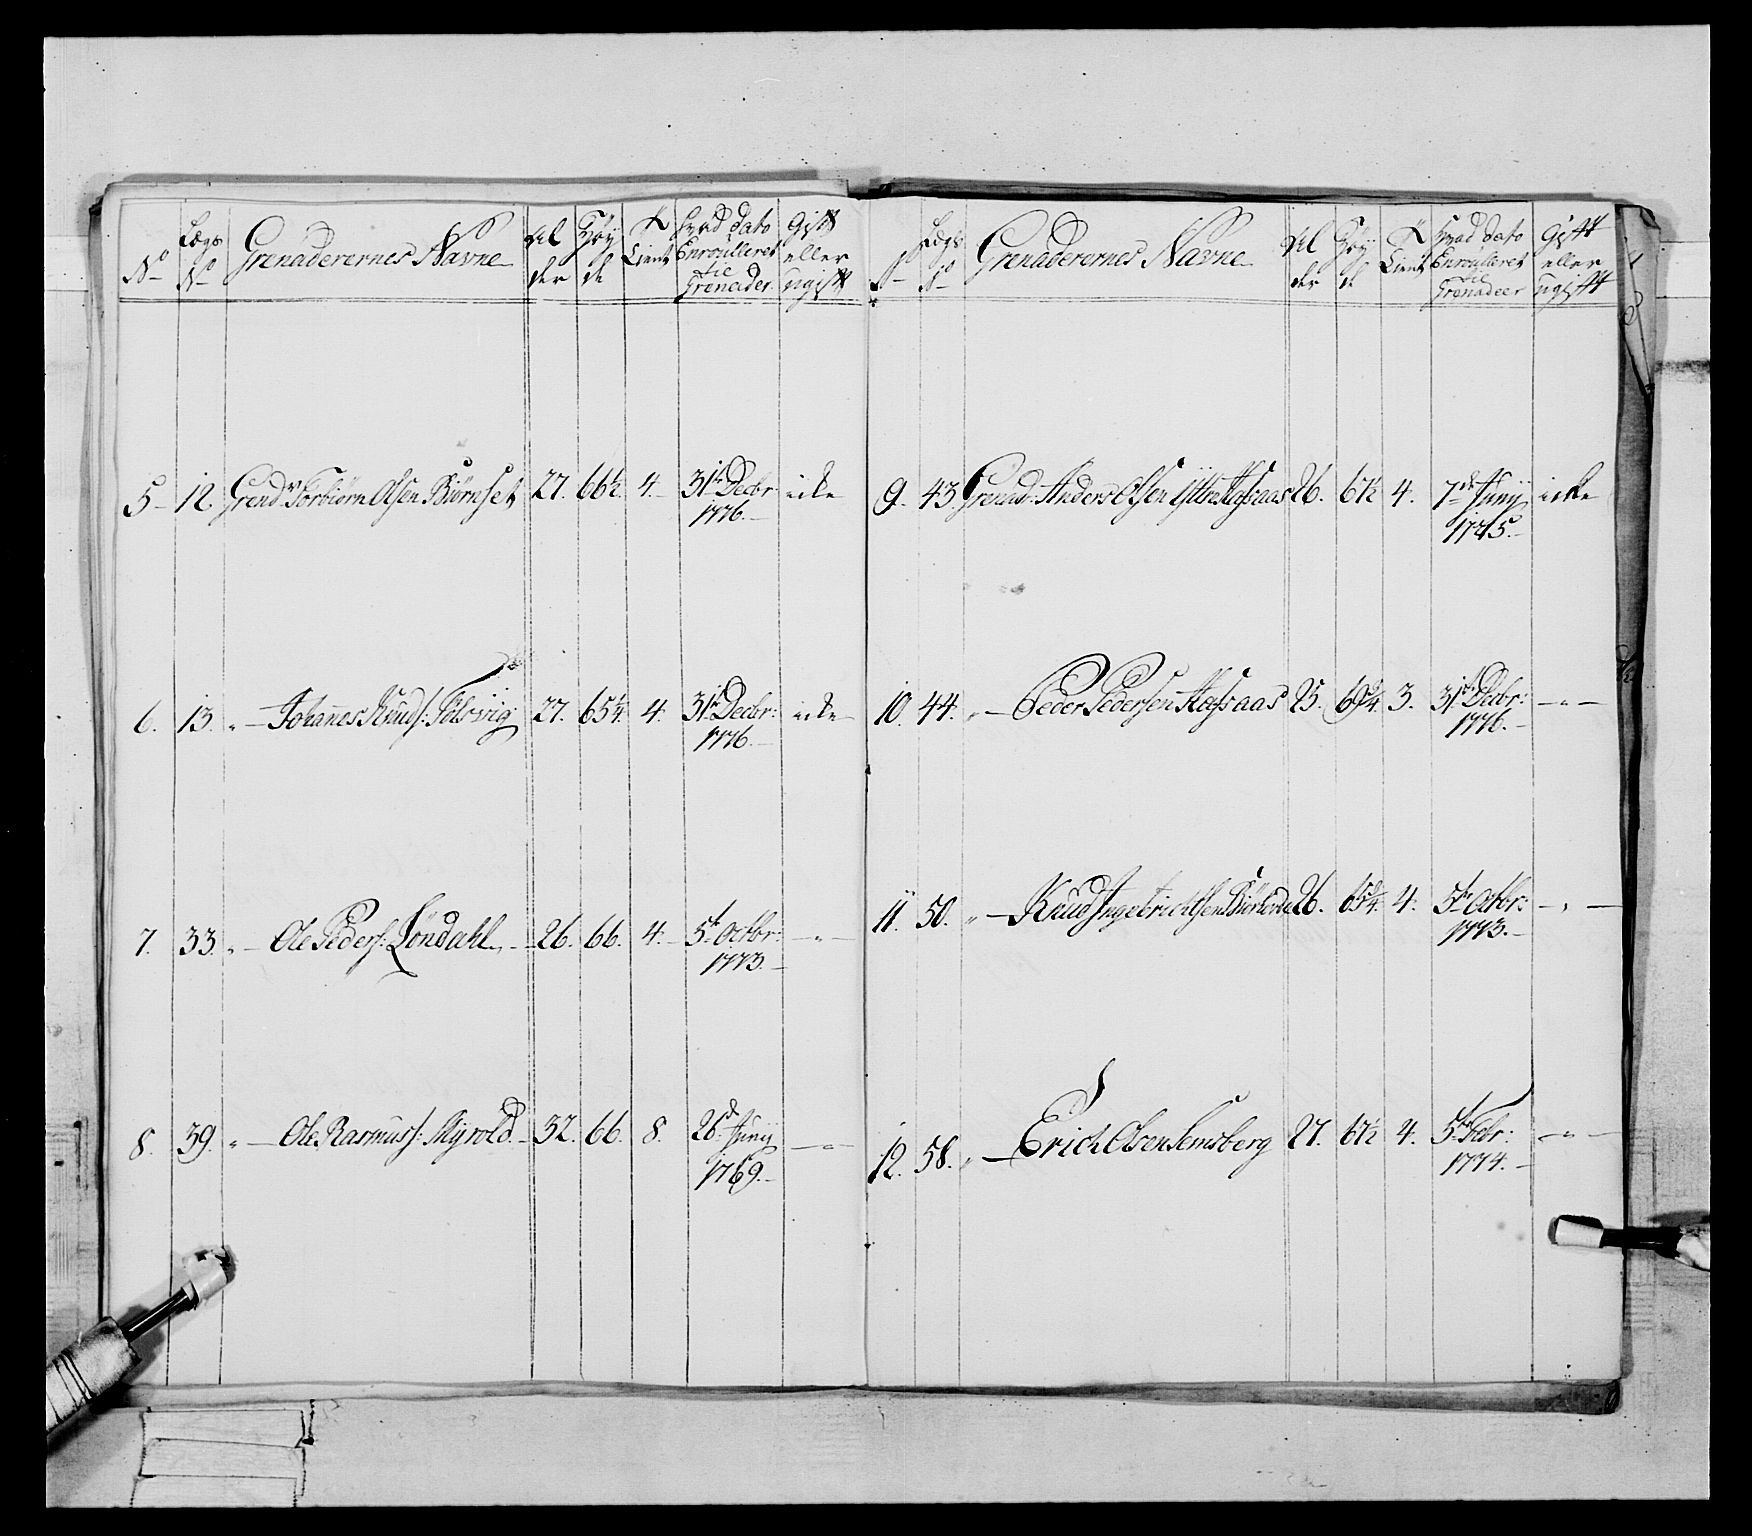 No Lægs No Grenaderernes Navne Alder Høyde Kl. Tient Hvad dato Enroulleret til Grenader Gift eller ugift
5 12. Gren<sup>dr</sup> Torbiørn Olsen Biørnset 27. 66½. 4. 31te Decbr 1776. icke
6. 13. „ Johannes Knuds: Tølsvig 27. 65¼. 4. 31te Decbr: 1776. icke
7. 33. „ Ole Peders: Løndahl 26. 66. 4. 5te Octbr: 1773. „
8. 39. „ Ole Rasmuss: Myrold 32. 66. 8. 26d Junij 1769. „
No Lægs No Grenaderernes Navne Alder Høyde Tient Hvad dato Enroulleret til Grenadeer Gift eller ugift
9. 43. Grenad: Anders Olsen Hafsaas 26. 67½ 4. 7de Junij 1775. icke
10. 44. „ Peder Pedersen Hafsaas 25. 69¾. 3. 31te Decbr: 1776. „
11 50. „ Knud Ingebrichtsen 26. 65¾. 4. 5te Octbr: 1773. „
12. 58. „ Erich Olsen Semsberg 27. 67½ 4. 5te Febr: 1774. „